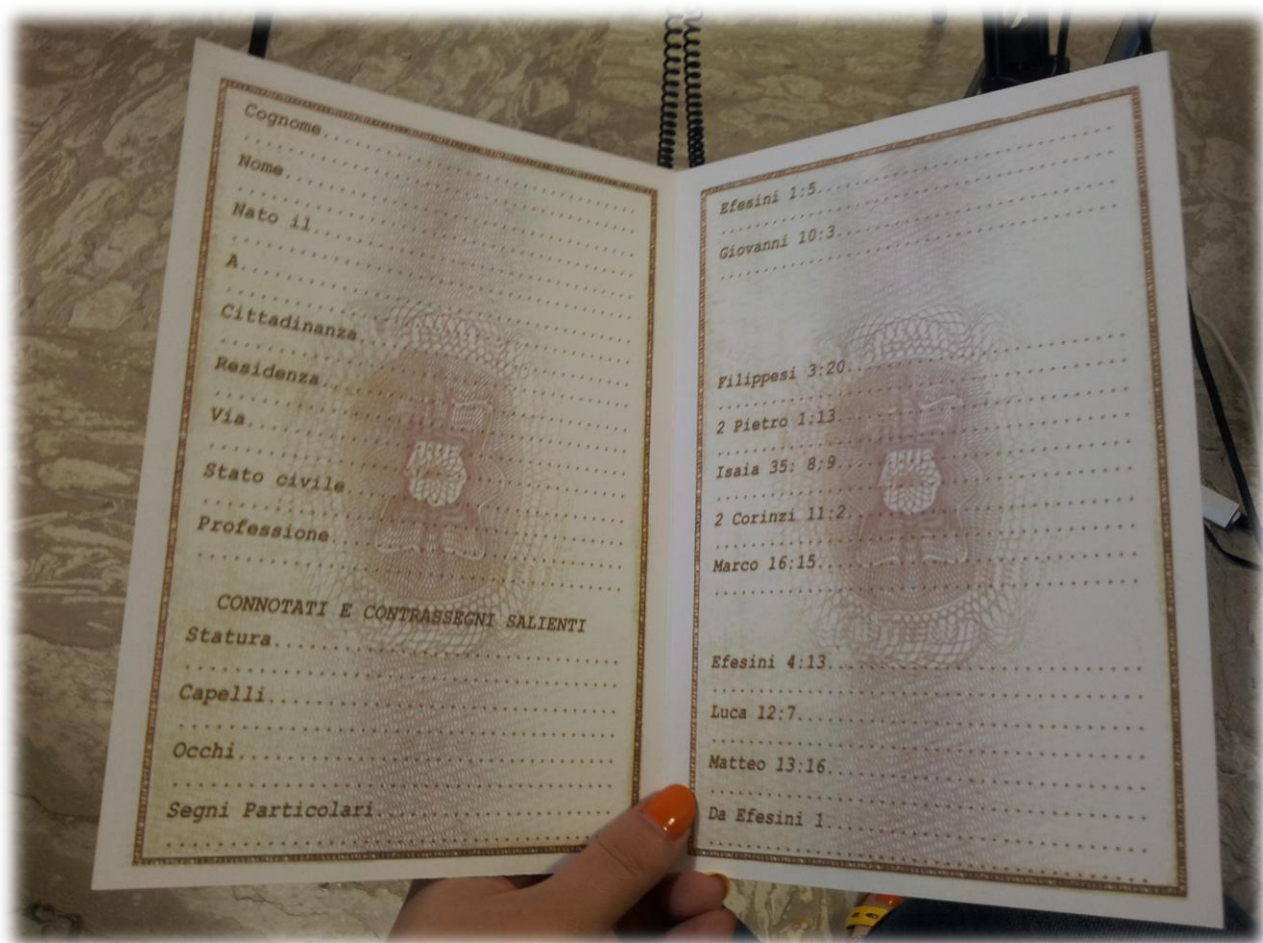 Cognome
Nome
Nato il
A
Cittadinanza
Residenza
Via
Stato civile
Professione
CONNOTATI E CONTRASSEGNI SALIENTI
Statura
Capelli
Occhi
Segni Particolari
Efesini 1:5
Giovanni 10:3
Filippesi 3:20
2 Pietro 1:13
Isaia 35: 8;9
2 Corinzi 11:2
Marco 16:15
Efesini 4:13
Luca 12:7
Matteo 13:16
Da Efesini 1